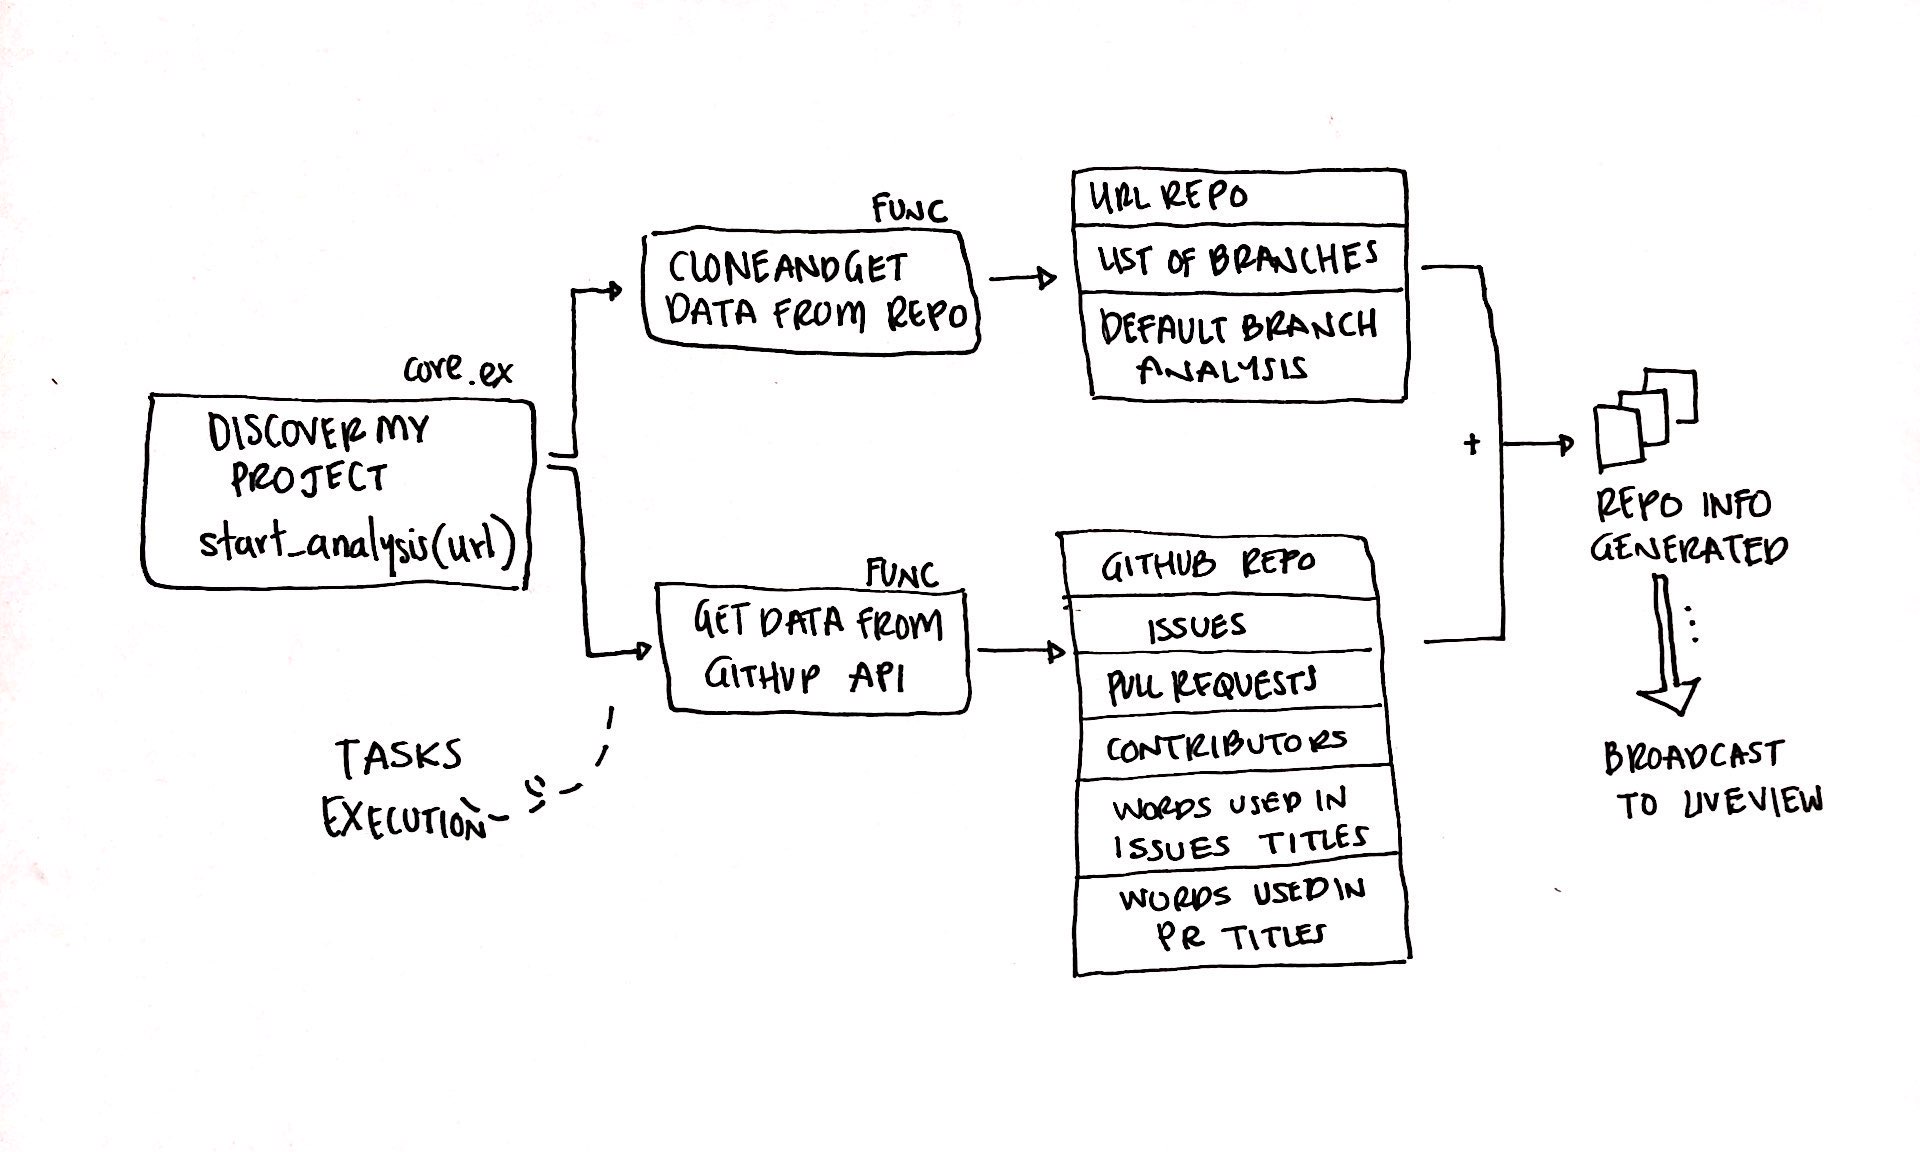 core.ex
DISCOVER MY
PROJECT
start_analysis(url)
FUNC
CLONE AND GET
DATA FROM REPO
URL REPO
LIST OF BRANCHES
DEFAULT BRANCH
ANALYSIS
FUNC
GET DATA FROM
GITHUP API
GITHUB REPO
ISSUES
PULL REQUESTS
CONTRIBUTORS
WORDS USED IN
ISSUES TITLES
WORDS USED IN
PR TITLES
TASKS
EXECUTION
+
REPO INFO
GENERATED
BROADCAST
TO LIVEVIEW